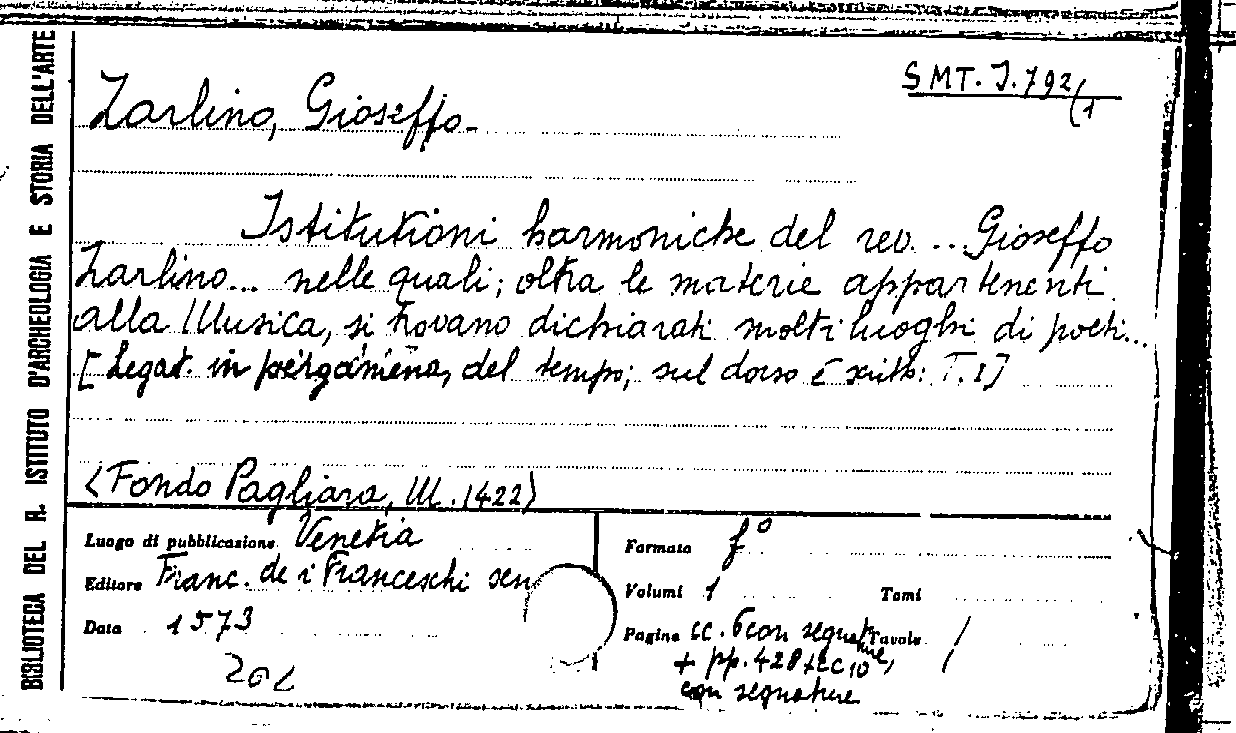 BIBLIOTECA DEL R. ISTITUTO D'ARCHEOLOGIA E STORIA DELL'ARTE
SMT. J.792/1
Zarlino, Gioseffo-
Istitutioni harmoniche del rev. ... Gioseffo
Zarlino... nelle quali; oltra le materie appartenenti
alla Musica, si trovano dichiarati molti luoghi di poeti...
[Legat. in pergamena, del tempo; sul dorso è scritto: T.I]
<Fondo Pagliara, M.1422>
Luogo di pubblicazione Venetia
Formato f°
Editore Franc. de i Franceschi sen
Volumi 1 Tomi
Data 1573
Pagine cc. 6 con segnature, Tavole /
+ pp. 428 + cc 10
con segnature